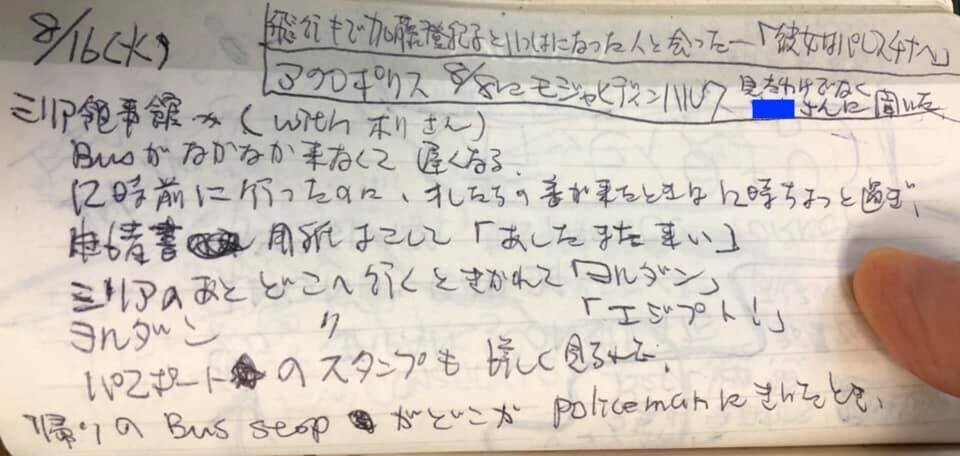 8/16(火)
飛行キで加藤登紀子といっしょになった人と会った―「彼女はパレスチナへ」
アクロポリス 8/8に モジャヒディン ハルク
さんに聞いた
シリア領事館へ (with ホリさん)
Busがなかなか来なくて 遅くなる.
12時前に行ったのに、オレたちの番が来たときは12時ちょっと過ぎ、
申請書 用紙よこして「あしたまた来い」
シリアのあとどこへ行くときかれて「ヨルダン」
ヨルダン 〃 「エジプト!」
パスポートのスタンプも 詳しく見られて、
帰りの Bus stop がどこか policemanにきいたとき、